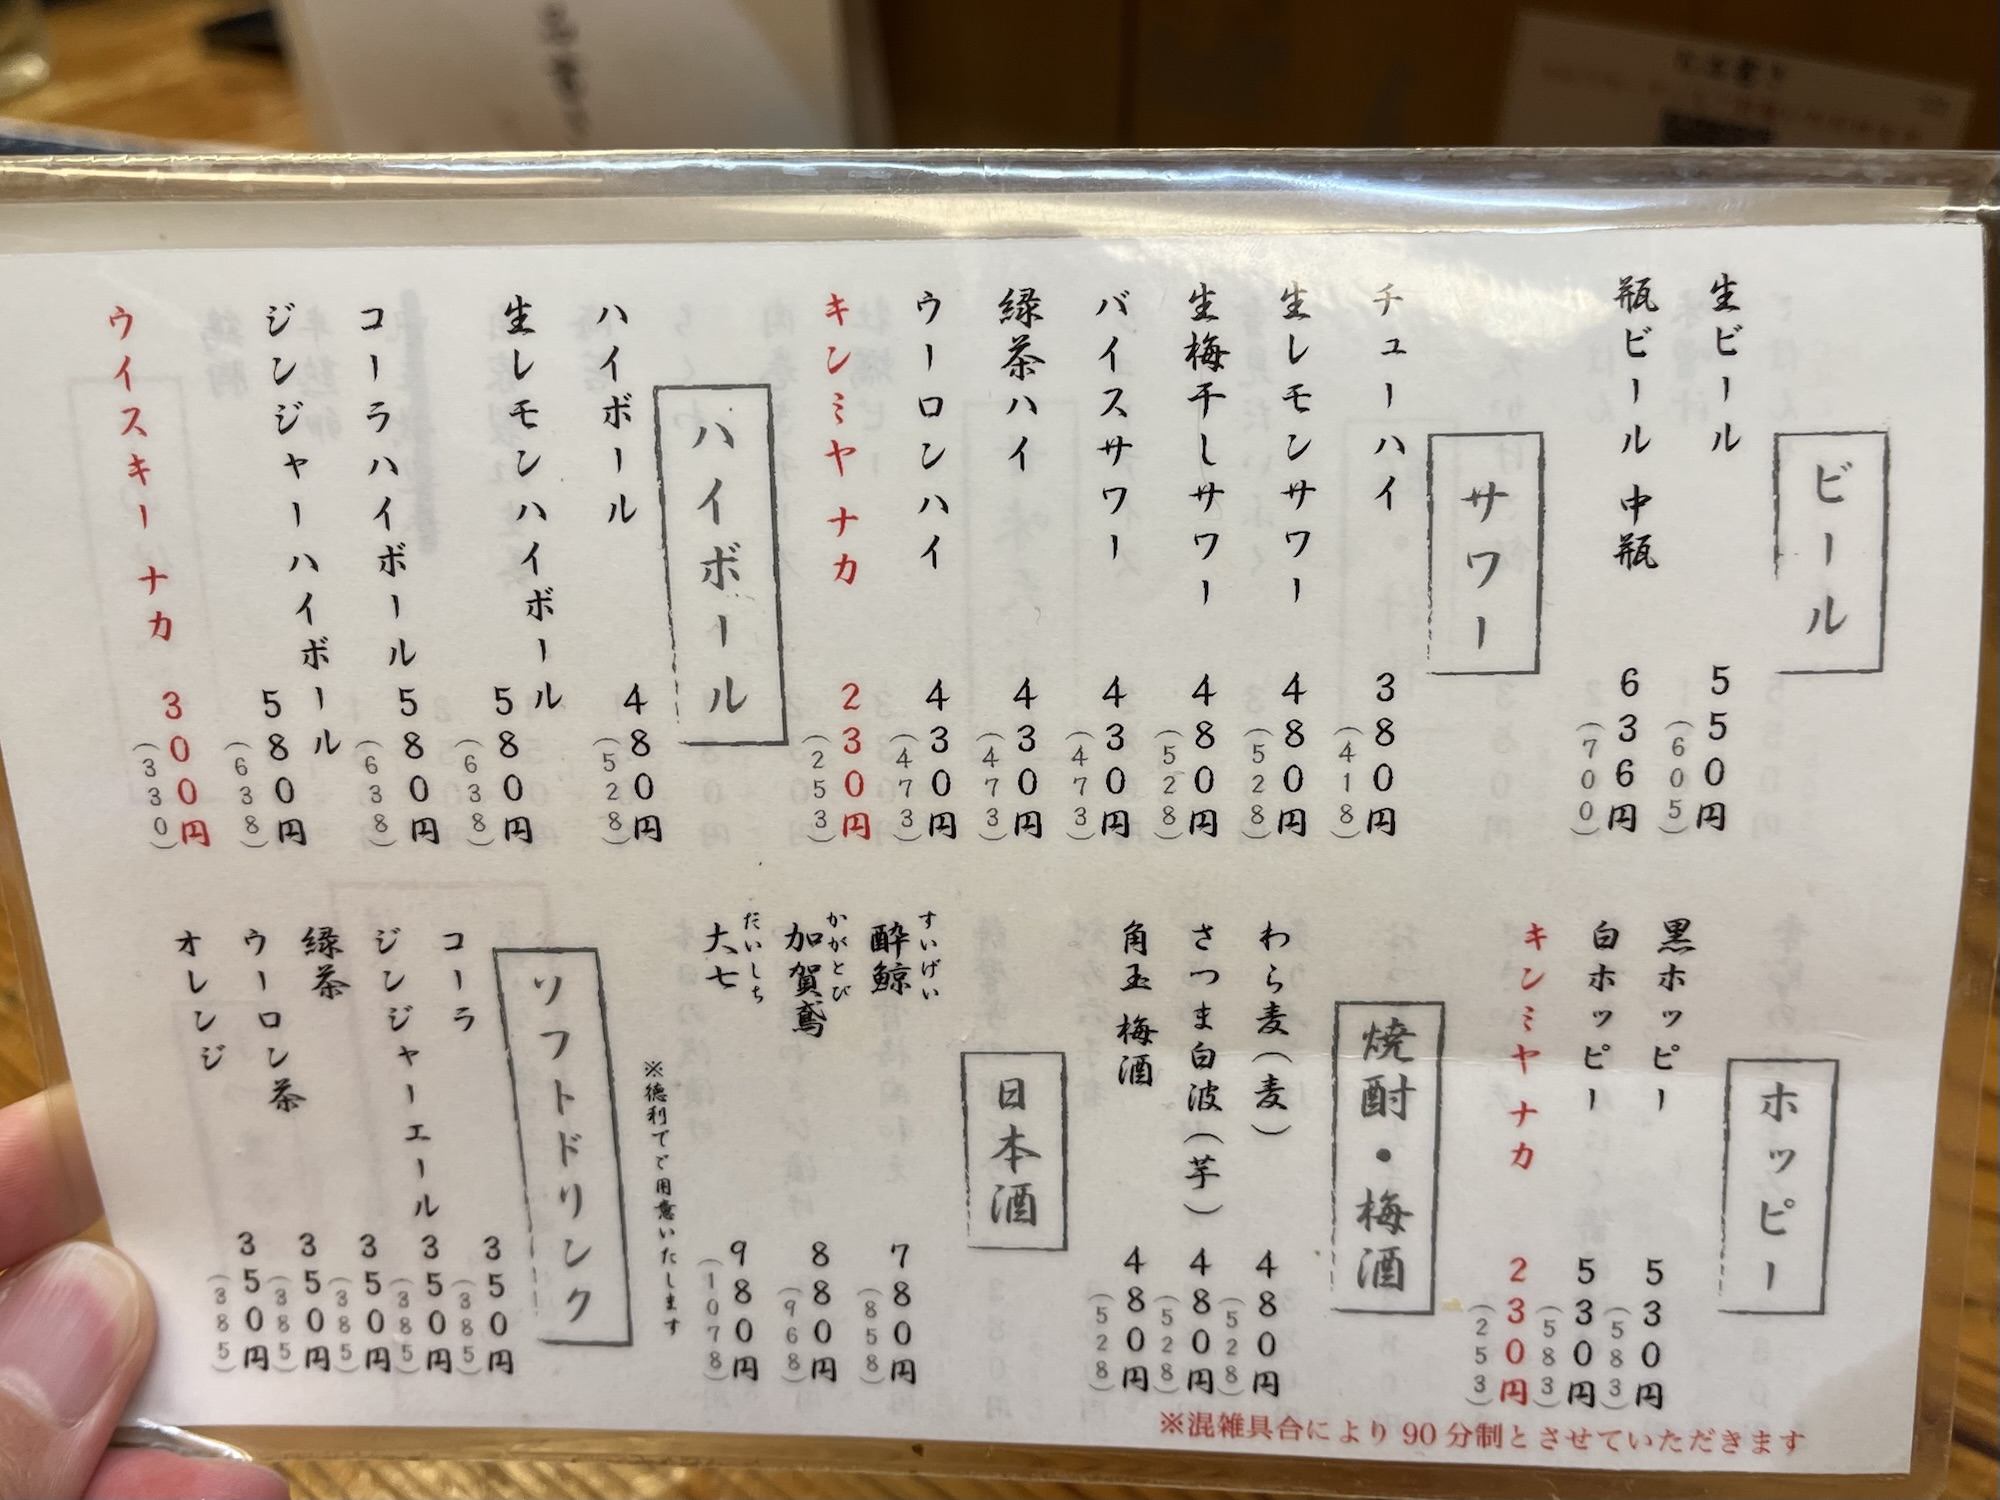 ビール
生ビール 550円 (605)
瓶ビール 中瓶 636円 (700)
サワー
チューハイ 380円 (418)
生レモンサワー 480円 (528)
生梅干しサワー 480円 (528)
バイスサワー 430円 (473)
緑茶ハイ 430円 (473)
ウーロンハイ 430円 (473)
キンミヤ ナカ 230円 (253)
ハイボール
ハイボール 480円 (528)
生レモンハイボール 580円 (638)
コーラハイボール 580円 (638)
ジンジャーハイボール 580円 (638)
ウイスキー ナカ 300円 (330)
ホッピー
黒ホッピー 530円 (583)
白ホッピー 530円 (583)
キンミヤ ナカ 230円 (253)
焼酎・梅酒
わら麦(麦) 480円 (528)
さつま白波(芋) 480円 (528)
角玉 梅酒 480円 (528)
日本酒
すいげい
酔鯨 780円 (858)
かがとび
加賀鳶 880円 (968)
だいしち
大七 980円 (1078)
※徳利でご用意いたします
ソフトドリンク
コーラ 350円 (385)
ジンジャーエール 350円 (385)
緑茶 350円 (385)
ウーロン茶 350円 (385)
オレンジ 350円 (385)
※混雑具合により90分制とさせていただきます